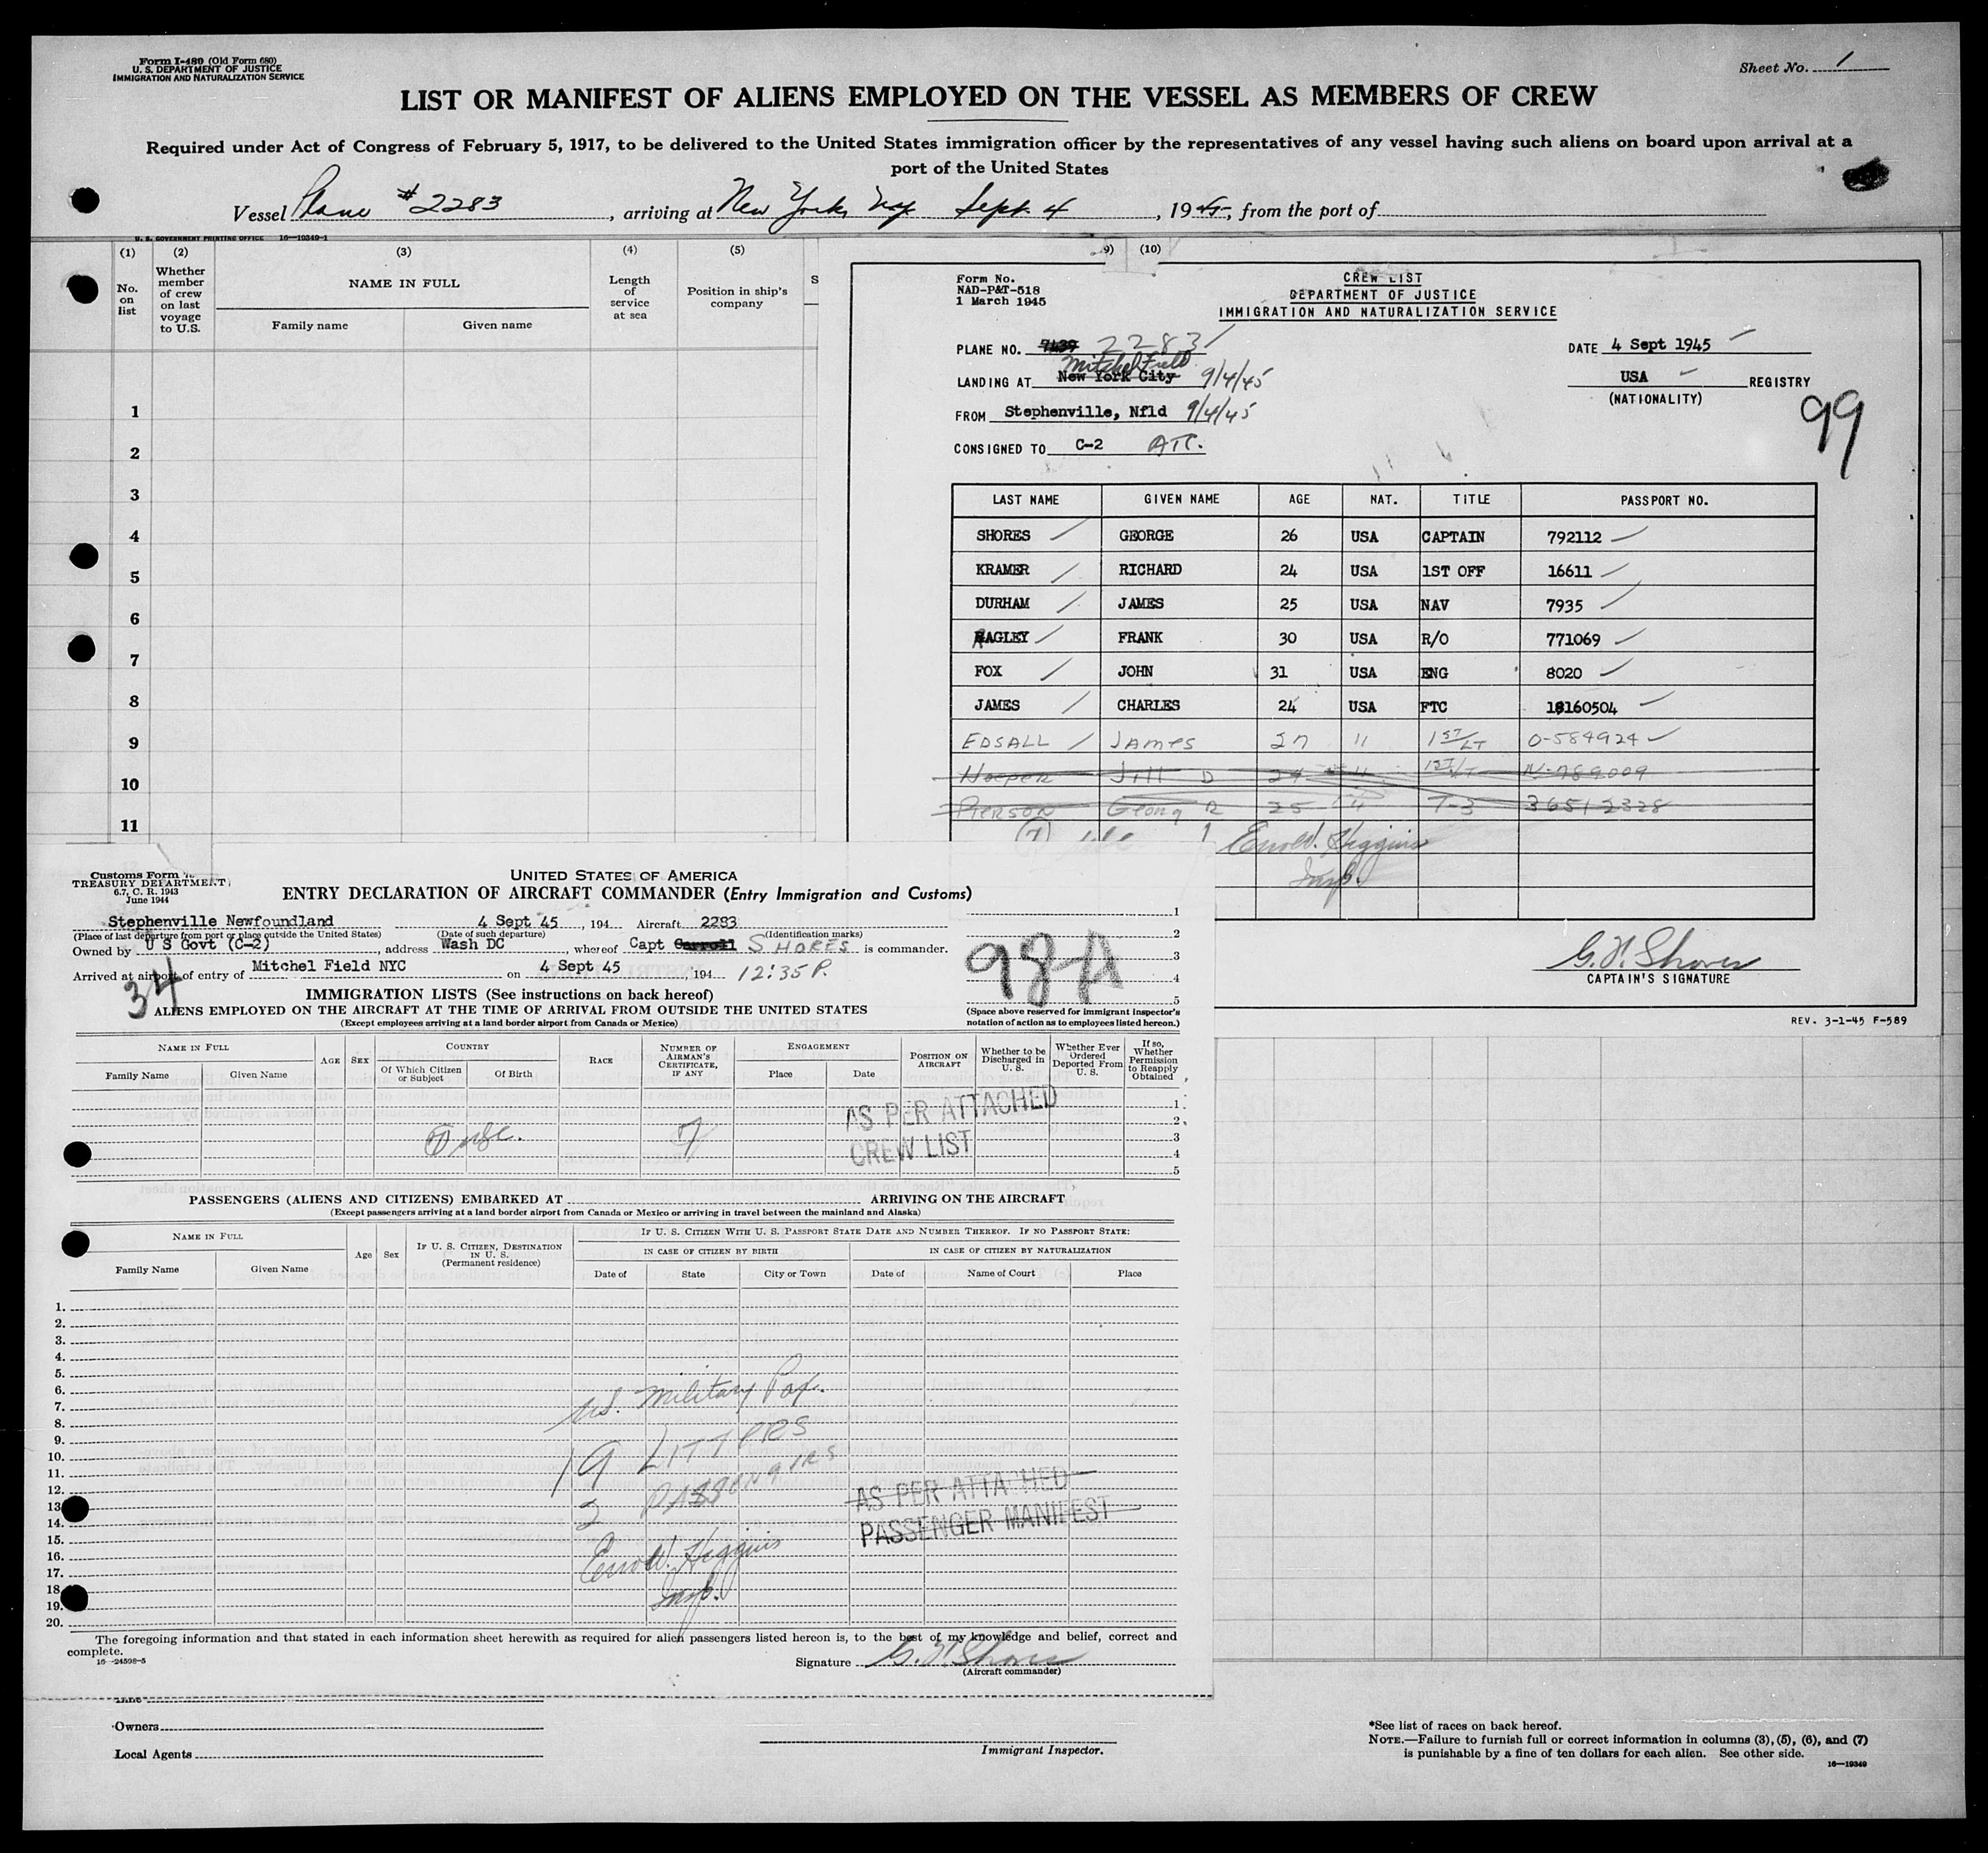 Form I-480 (Old Form 680)
U. S. DEPARTMENT OF JUSTICE
IMMIGRATION AND NATURALIZATION SERVICE
Sheet No. 1
LIST OR MANIFEST OF ALIENS EMPLOYED ON THE VESSEL AS MEMBERS OF CREW
Required under Act of Congress of February 5, 1917, to be delivered to the United States immigration officer by the representatives of any vessel having such aliens on board upon arrival at a
port of the United States
Vessel Plane #2283, arriving at New York, NY Sept. 4, 1945, from the port of
U. S. GOVERNMENT PRINTING OFFICE 16—19349-1
(1) (2) (3) (4) (5) 9) (10)
No. on list
Whether member of crew on last voyage to U.S.
NAME IN FULL
Family name Given name
Length of service at sea
Position in ship's company
S
1
2
3
4
5
6
7
8
9
10
11
Form No.
NAD-P&T-518
1 March 1945
CREW LIST
DEPARTMENT OF JUSTICE
IMMIGRATION AND NATURALIZATION SERVICE
PLANE NO. 7439 2283
DATE 4 Sept 1945
Mitchel Field
LANDING AT New York City 9/4/45
USA REGISTRY
(NATIONALITY)
FROM Stephenville, Nfld 9/4/45
99
CONSIGNED TO C-2 ATC.
LAST NAME GIVEN NAME AGE NAT. TITLE PASSPORT NO.
SHORES GEORGE 26 USA CAPTAIN 792112
KRAMER RICHARD 24 USA 1ST OFF 16611
DURHAM JAMES 25 USA NAV 7935
BAGLEY FRANK 30 USA R/O 771069
FOX JOHN 31 USA ENG 8020
JAMES CHARLES 24 USA FTC 18160504
EDSALL JAMES 27 " 1ST/LT O-584924
Hooper Jill D 24 " 1ST/LT N-789009
PIERSON Georg R 25 " T-3 36512328
(7) 
Higgins
Insp.
G. H. Shores
CAPTAIN'S SIGNATURE
REV. 3-1-45 F-589
Customs Form
TREASURY DEPARTMENT
6.7, C. R. 1943
June 1944
UNITED STATES OF AMERICA
ENTRY DECLARATION OF AIRCRAFT COMMANDER (Entry Immigration and Customs)
Stephenville Newfoundland 4 Sept 45, 194 Aircraft 2283
(Place of last departure from port or place outside the United States) (Date of such departure) (Identification marks)
Owned by U S Govt (C-2), address Wash DC, whereof Capt Carroll SHORES is commander.
Arrived at airport of entry of Mitchel Field NYC on 4 Sept 45, 194 12:35 P.
34
98A
1
2
3
4
5
IMMIGRATION LISTS (See instructions on back hereof)
ALIENS EMPLOYED ON THE AIRCRAFT AT THE TIME OF ARRIVAL FROM OUTSIDE THE UNITED STATES
(Except employees arriving at a land border airport from Canada or Mexico)
(Space above reserved for immigrant inspector's notation of action as to employees listed hereon.)
NAME IN FULL
Family Name Given Name
AGE SEX
COUNTRY
Of Which Citizen or Subject Of Birth
RACE
NUMBER OF AIRMAN'S CERTIFICATE, IF ANY
ENGAGEMENT
Place Date
POSITION ON AIRCRAFT
Whether to be Discharged in U. S.
Whether Ever Ordered Deported From U. S.
If so, Whether Permission to Reapply Obtained
1
2
3
4
5
7
AS PER ATTACHED
CREW LIST
PASSENGERS (ALIENS AND CITIZENS) EMBARKED AT ARRIVING ON THE AIRCRAFT
(Except passengers arriving at a land border airport from Canada or Mexico or arriving in travel between the mainland and Alaska)
NAME IN FULL
Family Name Given Name
Age Sex
IF U. S. CITIZEN, DESTINATION IN U. S.
(Permanent residence)
IF U. S. CITIZEN WITH U. S. PASSPORT STATE DATE AND NUMBER THEREOF. IF NO PASSPORT STATE:
IN CASE OF CITIZEN BY BIRTH IN CASE OF CITIZEN BY NATURALIZATION
Date of State City or Town Date of Name of Court Place
1.
2.
3.
4.
5.
6.
7.
8.
9.
10.
11.
12.
13.
14.
15.
16.
17.
18.
19.
20.
U.S. Military Pax.
19 LITTERS
2 PASSENGERS
AS PER ATTACHED
PASSENGER MANIFEST
Higgins
Insp.
The foregoing information and that stated in each information sheet herewith as required for alien passengers listed hereon is, to the best of my knowledge and belief, correct and
complete.
16—24598-5
Signature G. H. Shores
(Aircraft commander)
Owners
Local Agents
Immigrant Inspector.
*See list of races on back hereof.
NOTE.—Failure to furnish full or correct information in columns (3), (5), (6), and (7)
is punishable by a fine of ten dollars for each alien. See other side.
16—19349